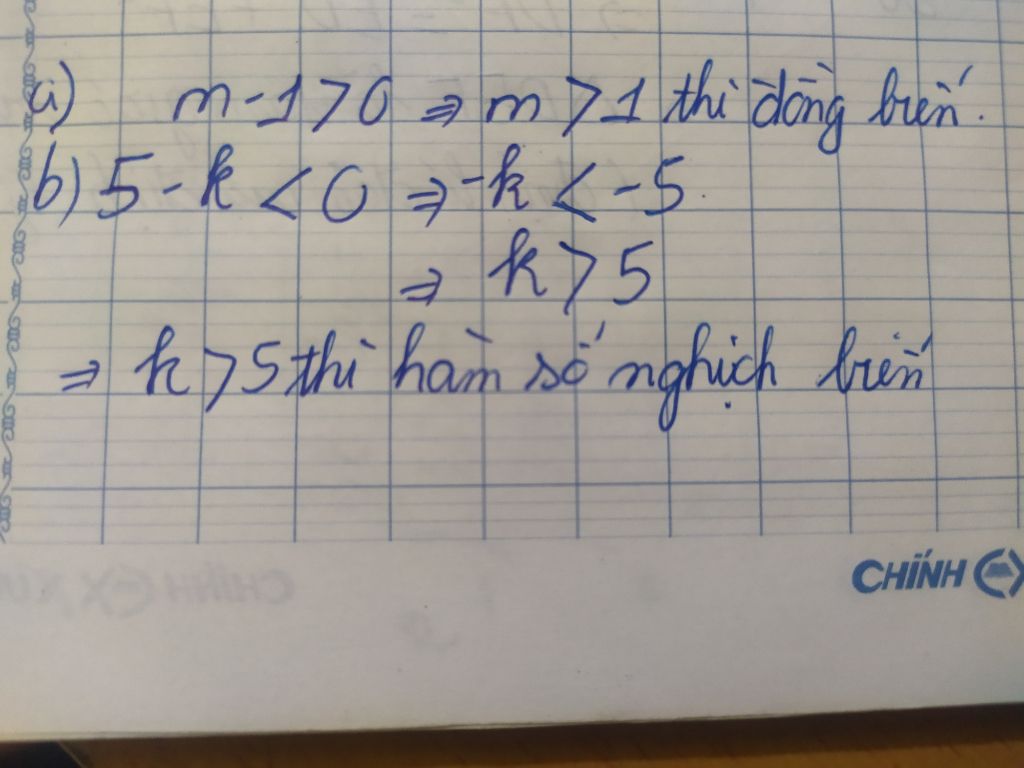 a) m - 1 > 0 ⇒ m > 1 thì đồng biến.
b) 5 - k < 0 ⇒ -k < -5.
⇒ k > 5
⇒ k > 5 thì hàm số nghịch biến
CHÍNH